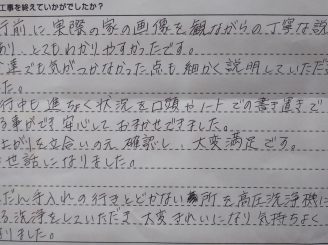 工事を終えていかがでしたか?
行前に実際の家の画像を観ながらの丁寧な説
あり、とてもわかりやすかったです。
業でも気がつかなかった点も細かく説明していただき
した。
行中も進ちょく状況を口頭やノートでの書き置きで
る事ができ安心しておまかせできました。
上がりを立合いのえ確認し、大変満足です。
世話になりました。
だん手入れの行きとどかない所を高圧洗浄機に
る洗浄をしていただき大変きれいになり気持ちよく
りました。